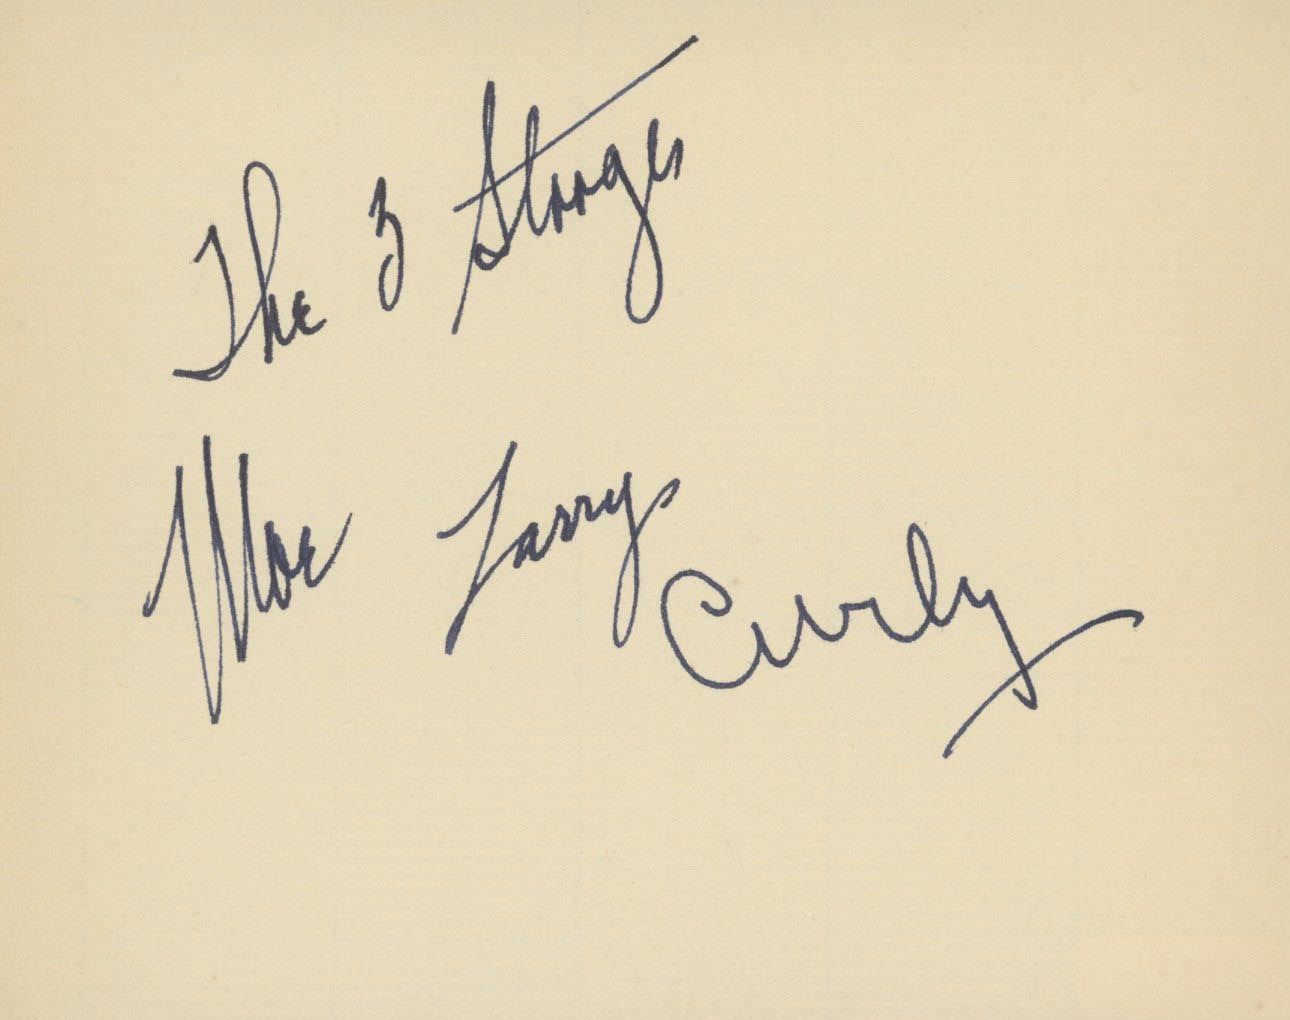 The 3 Stooges
Moe Larry Curly